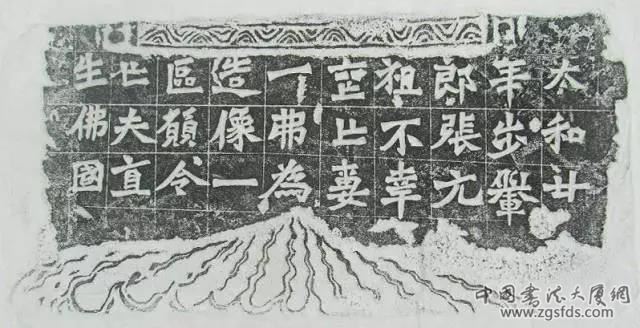 太和廿
年步轝
郎張元
祖不幸
喪亡妻
一弗為
造像一
區願令
亡夫直
生佛國
中國書法大廈網
www.zgsfds.com